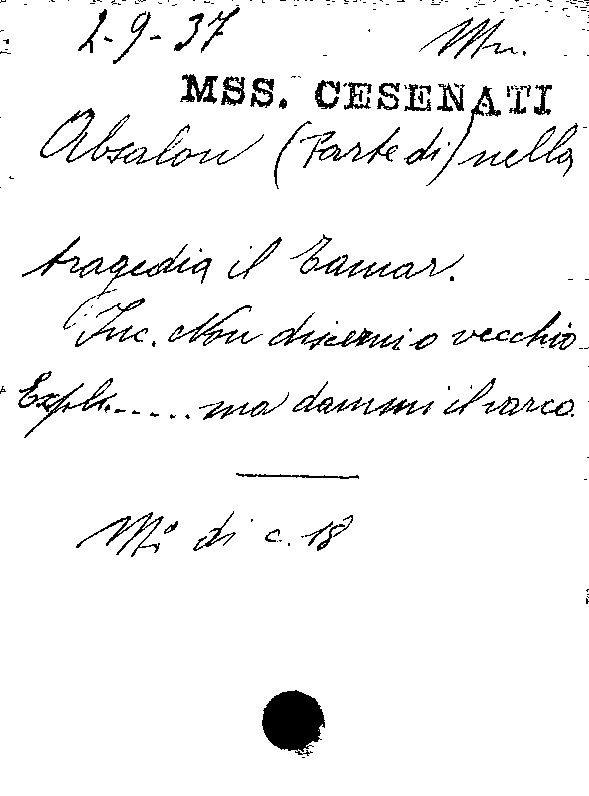 2-9-37 Mn.
MSS. CESENATI
Absalon (Parte di) nella
tragedia il Tamar.
Inc. Non discerni o vecchio
Expl. ...... ma dammi il varco.
Mº di c. 18